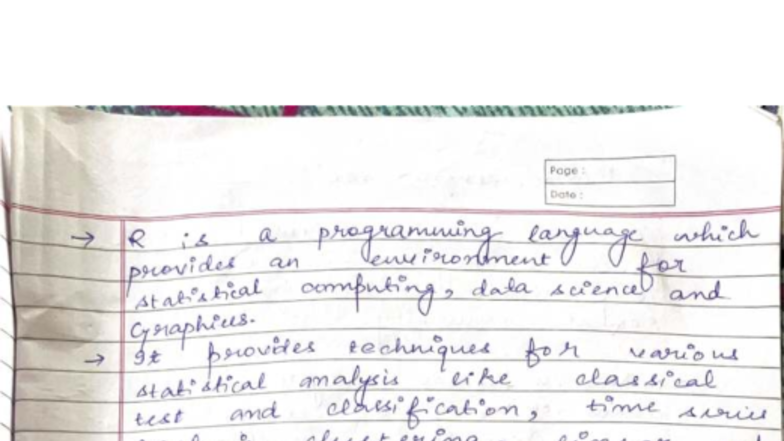 Page :
Date :
→ R is a programming language which
provides an environment for
statistical computing, data science and
Graphics.
→ It provides techniques for various
statistical analysis like classical
test and classification, time series
clustering